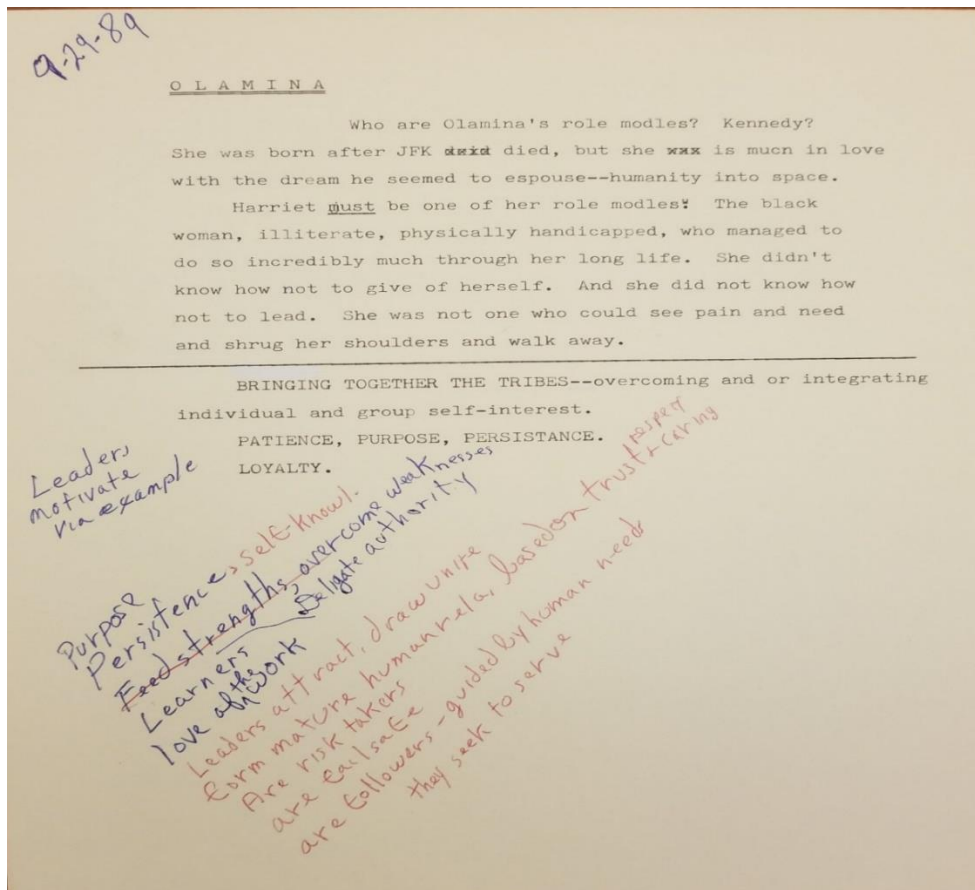 9-29-89
O L A M I N A
Who are Olamina's role modles? Kennedy?
She was born after JFK died, but she is mucn in love
with the dream he seemed to espouse--humanity into space.
Harriet must be one of her role modles! The black
woman, illiterate, physically handicapped, who managed to
do so incredibly much through her long life. She didn't
know how not to give of herself. And she did not know how
not to lead. She was not one who could see pain and need
and shrug her shoulders and walk away.
BRINGING TOGETHER THE TRIBES--overcoming and or integrating
individual and group self-interest.
PATIENCE, PURPOSE, PERSISTANCE.
LOYALTY.
Leaders
motivate
via example
Purpose
Persistence, self-knowl.
Feed strengths, overcome weaknesses
Learners Deligate authority
love of the work
Leaders attract, draw unite
form mature human rela, based on trust, respect + caring
Are risk takers
are failsafe
are followers - guided by human need
they seek to serve